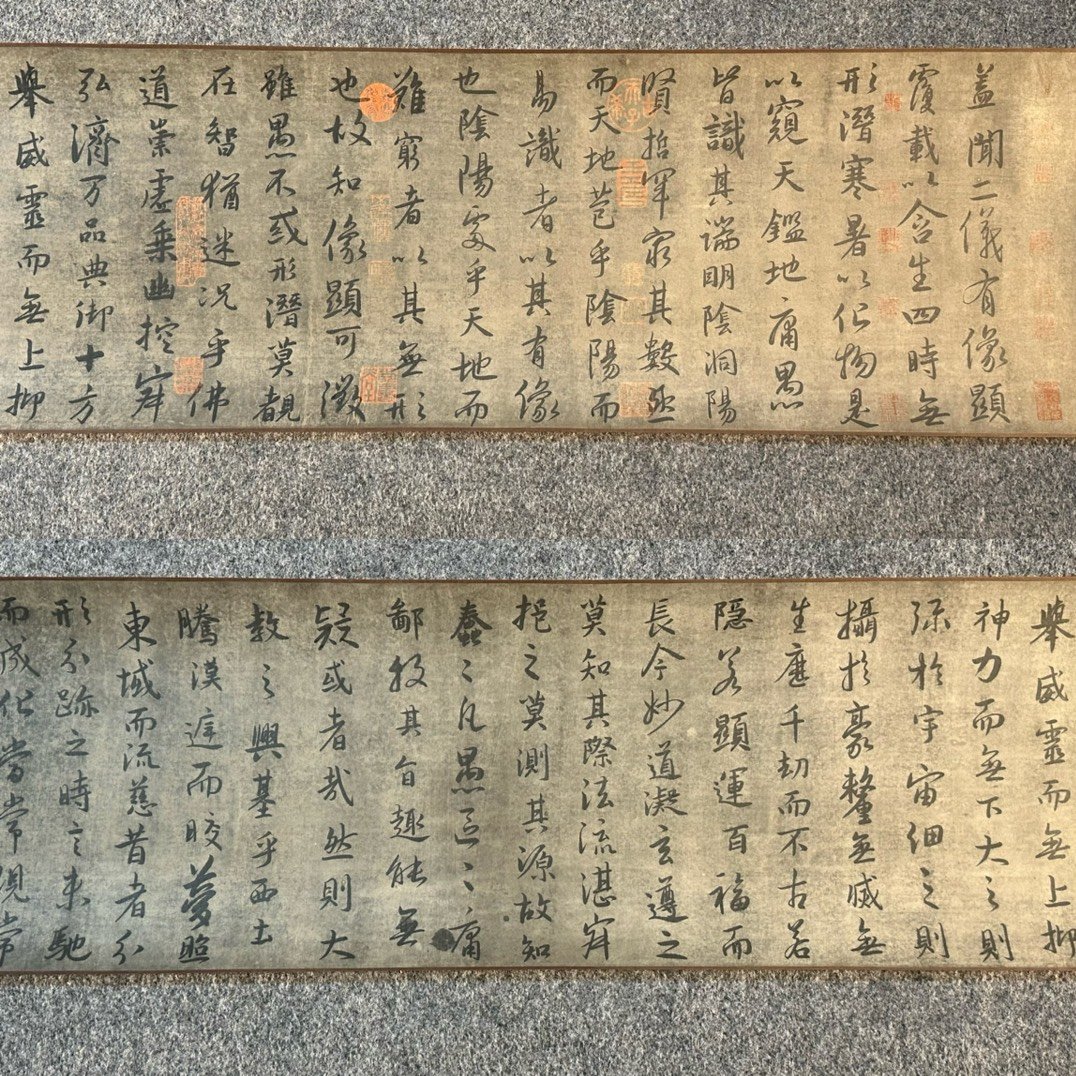 蓋聞二儀有像顯
覆載以含生四時無
形潛寒暑以化物是
以窺天鑑地庸愚
皆識其端明陰洞陽
賢哲罕窮其數然
而天地苞乎陰陽而
易識者以其有像
也陰陽處乎天地而
難窮者以其無形
也故知像顯可徵
雖愚不惑形潛莫覩
在智猶迷況乎佛
道崇虛乗幽控寂
弘濟万品典御十方
舉威靈而無上抑
舉威靈而無上抑
神力而無下大之則
弥於宇宙細之則
攝於豪釐無滅無
生歷千劫而不古若
隱若顯運百福而
長今妙道凝玄遵之
莫知其際法流湛寂
挹之莫測其源故知
蠢〻凡愚區〻庸
鄙投其旨趣能無
疑或者哉然則大
教之興基乎西土
騰漢庭而皎夢照
東域而流慈昔者分
形分跡之時言未馳
而成化當常現常